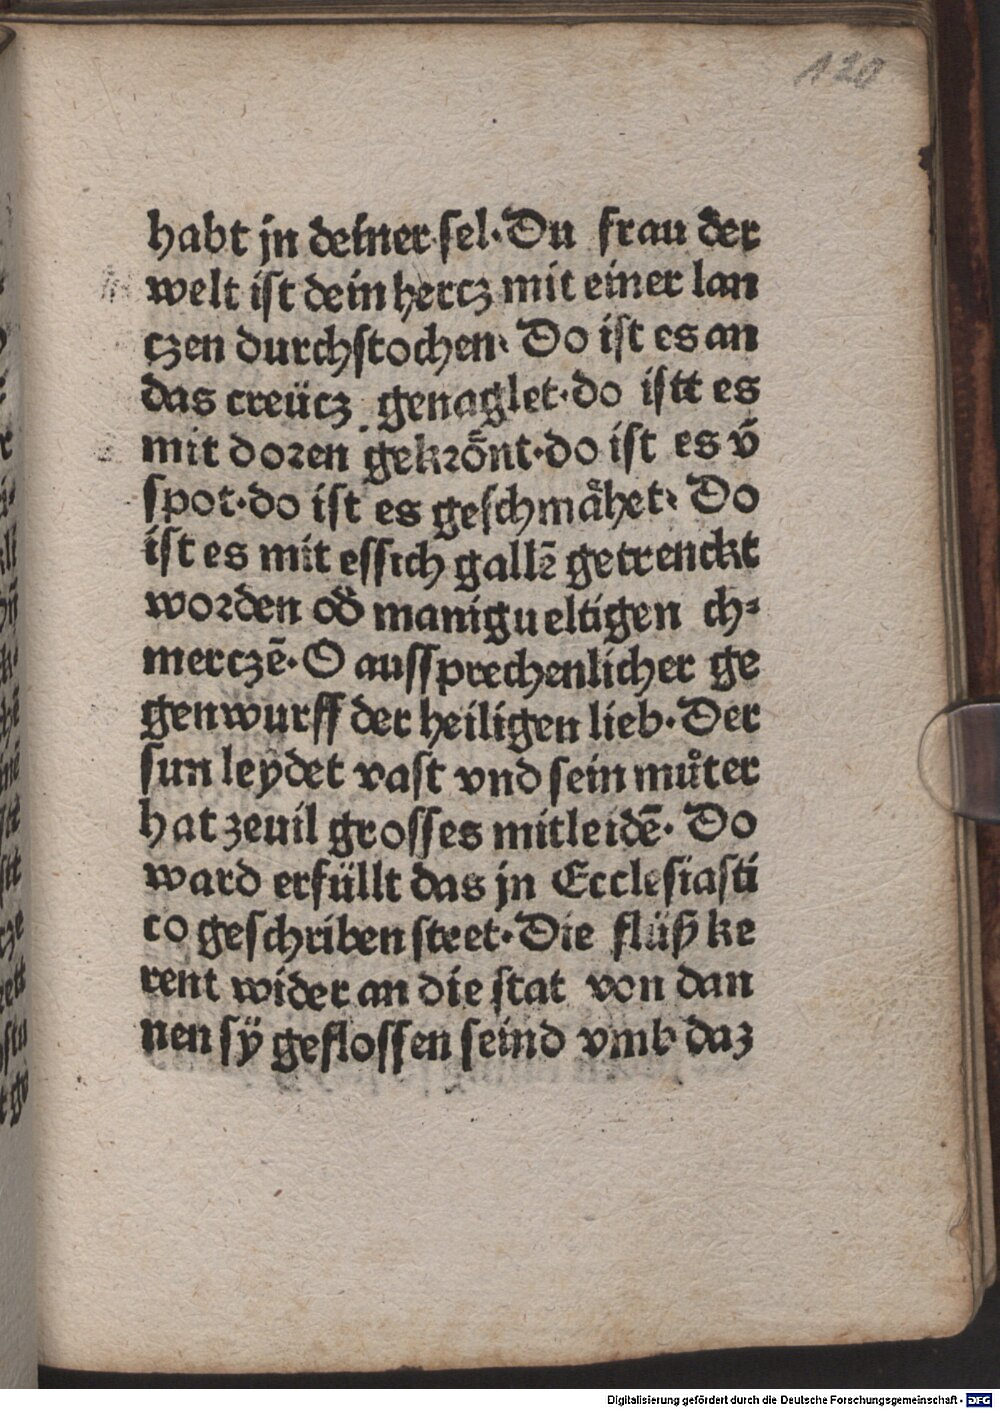 120
habt jn deiner sel·Du frau der
welt ist dein hercz mit einer lan
czen durchstochen· Do ist es an
das creücz genaglet·do istt es
mit doren gekrȫnt·do ist es vn̄
spot·do ist es geschmaͤhet· Do
ist es mit essich gallē getrenckt
worden od̕ manigueltigen ch⸗
merczē·O aussprechenlicher ge
genwurff der heiligen lieb·Der
sun leydet vast vnd sein muͦter
hat zeuil grosses mitleidē· Do
ward erfüllt das jn Ecclesiasti
co geschriben steet·Die flüß ke
rent wider an die stat von dan
nen sÿ geflossen seind vmb daz
Digitalisierung gefördert durch die Deutsche Forschungsgemeinschaft - DFG